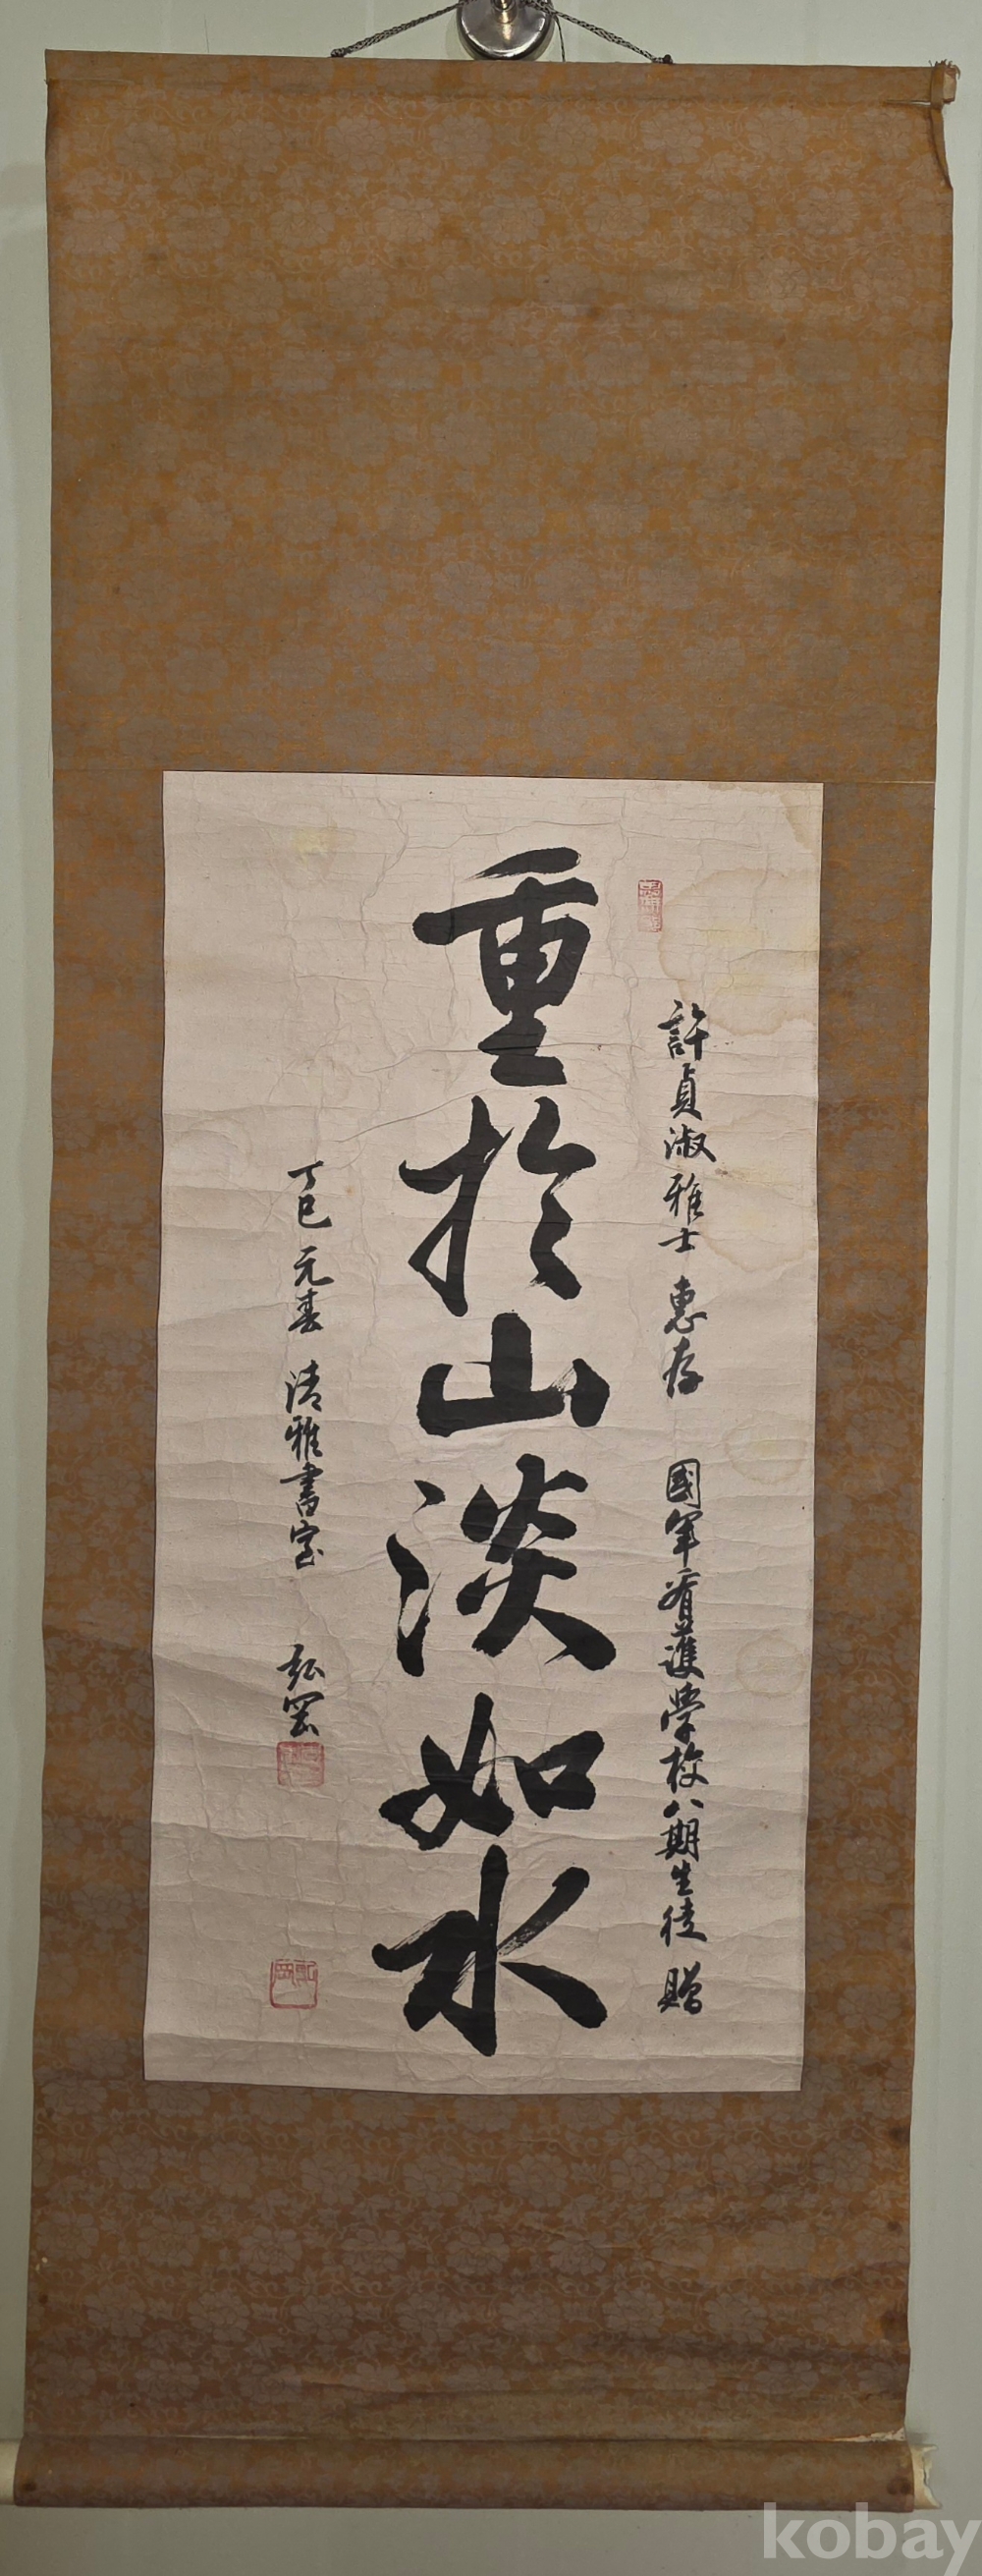 重於山淡如水
許貞淑雅士 惠存 國軍看護學校八期生徒 贈
丁巳 元春 清雅書室 弘罡
kobay